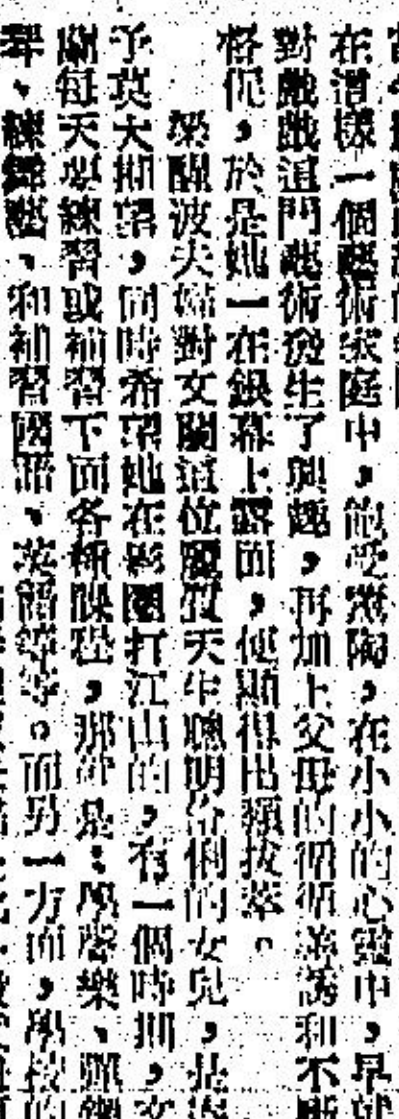 在這樣一個藝術家庭中，飽受薰陶，在小小的心靈中，早就
對戲劇這門藝術發生了興趣，再加上父母的循循善誘和不斷
督促，於是她一在銀幕上露面，便顯得出類拔萃。
梁醒波夫婦對文蘭這位麗質天生聰明伶俐的女兒，是
予莫大期望，同時希望她在影圈打江山的，有一個時期，文
蘭每天要練習或補習下面各種課程，那就是：學聲樂、彈鋼
琴、練舞蹈、和補習國語、英語等等。而另一方面，學校的